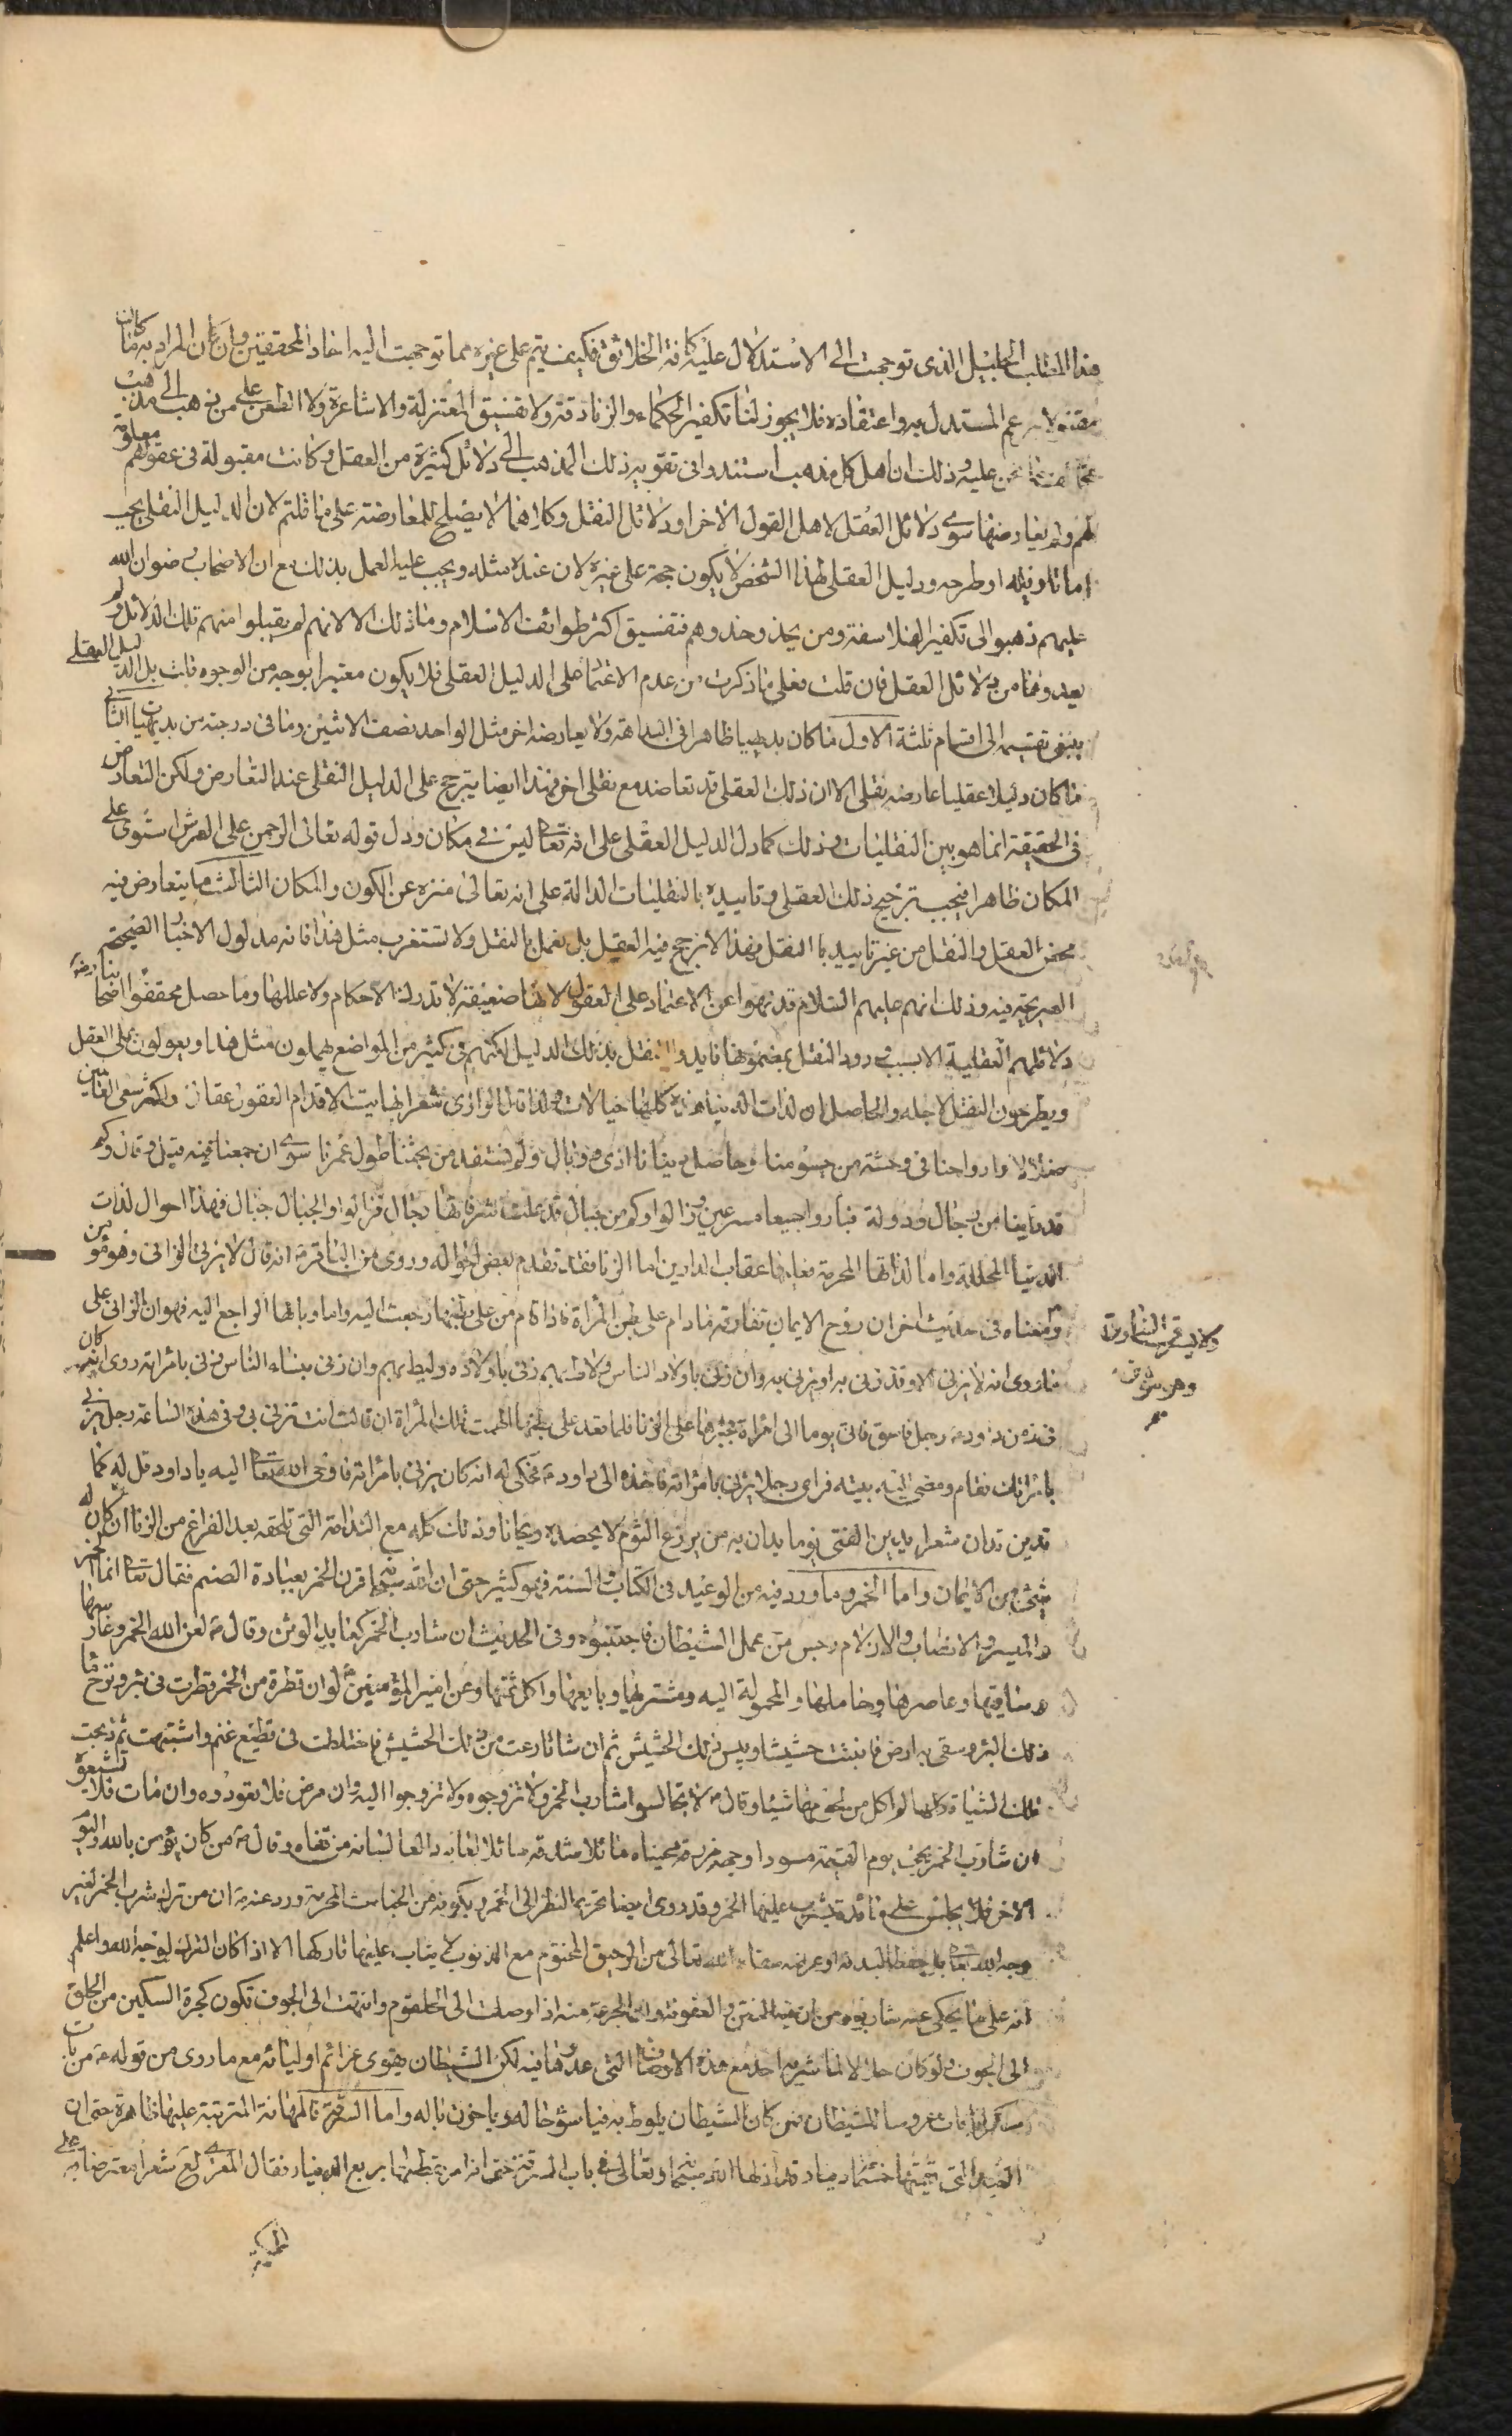 هذا المطلب الجليل الذى توجهت الى الاستدلال عليه كافة الخلائق فكيف يتم على غيره مما توجهت اليه احاد المحققين وان كان المراد به ما كانت
مقتد لاسر عم المستدل به واعتقاده فلا يجوز لنا تكفير الحكماء والزنادقة ولا تفسيق المعتزلة والاشاعرة ولا الطعن على من ذهب الى مذهب
نحن عليه وذلك ان اهل كل مذهب استندوا فى تقوية ذلك المذهب الى دلائل كثيرة من العقل وكانت مقبولة فى عقولهم
لهم ولم يعارضها سوى دلائل العقل لاهل القول الاخر او دلائل النقل وكلاهما لا يصلح للمعارضة على ما قلتم لان الدليل النقلى يجب
اما تاويله او طرحه ودليل العقلى لهذا الشخص لا يكون حجة على غيره لان عنده مثله ويجب عليه العمل بذلك مع ان الاصحاب رضوان الله
عليهم ذهبوا الى تكفير الفلاسفة ومن يحذو حذوهم وتفسيق اكثر طوائف الاسلام وما ذلك الا لانهم لم يقبلوا منهم تلك الدلائل ولم
يعدوها من دلائل العقل فان قلت فعلى ما ذكرت من عدم الاعتماد على الدليل العقلى فلا يكون معتبرا بوجه من الوجوه قلت بل الدليل العقلى
ينبغى تقسيمه الى اقسام ثلثة الاول ما كان بديهيا ظاهرا فى البداهة ولا يعارضه اخر مثل الواحد نصف الاثنين وما فى درجته من بديهيات الثانى
ما كان دليلا عقليا عارضه نقلى الا ان ذلك العقلى قد تعاضد مع نقلى اخر فهذا ايضا يترجح على الدليل النقلى عند التعارض ولكن التعارض
فى الحقيقة انما هو بين النقليات وذلك كما دل الدليل العقلى على انه تعالى ليس فى مكان ودل قوله تعالى الرحمن على العرش استوى على
المكان ظاهرا فيجب ترجيح ذلك العقلى وتاييده بالنقليات الدالة على انه تعالى منزه عن الكون والمكان الثالث ما يتعارض فيه
محض العقل والنقل من غير تاييد بالنقل فهذا لا نرجح فيه العقل بل نعمل بالنقل ولا تستغرب مثل هذا فانه مدلول الاخبار الصحيحة
الصريحة فيه وذلك انهم عليهم السلام قد نهوا عن الاعتماد على العقول لانها ضعيفة لا تدرك الاحكام ولا عللها وما حصل محققوا اصحابنا رض
دلائلهم العقلية الا بسبب ورود النقل بمضمونها فايدوا النقل بذلك الدليل لكنهم فى كثير من المواضع يهملون مثل هذا ويعولون على العقل
ويطرحون النقل لاجله والحاصل ان لذات الدنيا هذه كلها خيالات ولذا قال الرازى شعر نهاية الاقدام العقول عقال واكثر سعى العالمين
ضلال وارواحنا فى وحشة من جسومنا وحاصل دنيانا اذى ووبال ولم نستفد من بحثنا طول عمرنا سوى ان جمعنا فيه قيل وقال وكم
قد راينا من رجال ودولة فبادوا جميعا مسرعين وزالوا وكم من جبال قد علت شرفاتها رجال فزالوا والجبال جبال فهذا احوال لذات
الدنيا المحللة واما لذاتها المحرمة فعليها عقاب الدارين اما الزنا فقد تقدم بعض احواله وروى عن الباقر ع انه قال لا يزنى الزانى وهو مؤمن
ومعناه فى حديث اخر ان روح الايمان تفارقه مادام على بطن المرأة فاذا قام من على بطنها رجعت اليه واما وبالها الراجع اليه فهو ان الزانى على
ما روى انه لا يزنى الا وقد زنى به او يزنى به وان زنى باولاد الناس ولاط بهم زنى باولاده وليط بهم وان زنى بنساء الناس زنى بامراته روى انه كان
فى زمن داود ع رجل فاسق فاتى يوما الى امراة يجبرها على الزنا فلما قعد على بطنها الهمت تلك المرأة ان قالت انت تزنى بى وفى هذه الساعة رجل يزنى
بامرأتك فقام ومضى الى بيته فراى رجلا يزنى بامراته فاخذه الى داود ع فحكى له انه كان يزنى بامراته فاوحى الله تعالى اليه يا داود قل له كما
تدين تدان شعر يدين الفتى يوما يدان به من يزرع الثوم لا يحصده ريحانا وذلك كله مع الندامة التى تلحقه بعد الفراغ من الزنا ان كان له
شىء من الايمان واما الخمر وما ورد فيه من الوعيد فى الكتاب والسنة فهو كثير حتى ان الله سبحانه قرن الخمر بعبادة الصنم فقال تعالى انما الخمر
والميسر والانصاب والازلام رجس من عمل الشيطان فاجتنبوه وفى الحديث ان شارب الخمر كعابد الوثن وقال ع لعن الله الخمر وغارسها
وساقيها وعاصرها وحاملها والمحمولة اليه ومشتريها وبايعها واكل ثمنها وعن امير المؤمنين ع لو ان قطرة من الخمر قطرت فى بئر ونزح ما
ذلك البئر وسقى به ارض فانبتت حشيشا ويبس ذلك الحشيش ثم ان شاتا رعت من ذلك الحشيش فاختلطت فى قطيع غنم واشتبهت ثم ذبحت
تلك الشياة كلها لم اكل من لحومها شيئا وقال ع لا تجالسوا شارب الخمر ولا تزوجوه ولا تزوجوا اليه وان مرض فلا تعودوه وان مات فلا تشيعوه
ان شارب الخمر يجىء يوم القيمة مسودا وجهه مزرقة عيناه مائلا شدقه سائلا لعابه دالعا لسانه من قفاه وقال ع من كان يؤمن بالله واليوم
الاخر فلا يجلس على مائدة يشرب عليها الخمر وقد روى ايضا تحريم النظر الى الخمر ويكونه من الخبائث المحرمة ورد عنه ع ان من ترك شرب الخمر لغير
وجه الله تعالى بل حفظا لبدنه او عرضه سقاه الله تعالى من الرحيق المختوم مع الذنوب لا يثاب عليها تاركها الا اذا كان الترك لوجه الله واعلم
انه على ما يحكى عنه شاربوه من ان فيه المنتن والعفونة وان الجرعة منه اذا وصلت الى الحلقوم وانتهت الى الجوف تكون كجرة السكين من الحلق
الى الجوف ولو كان حلالا لما شربه احد مع هذه الاوصاف التى عدوها فيه لكن الشيطان يقوى عزائم اوليائه مع ما روى من قوله ع من بات
سكرانا بات عروسا للشيطان فمن كان الشيطان يلوط به فيا سوء حاله ويا خزى باله واما السرقة فالمهانة المترتبة عليها ظاهرة حتى ان
اليد التى قيمتها خمسمأة دينار قد اذلها الله سبحانه وتعالى فى باب السرقة حتى انه امر بقطعها بربع الدينار فقال المعرى لع شعرا معترضا به على
ولا يسرق السارق
وهو مؤمن